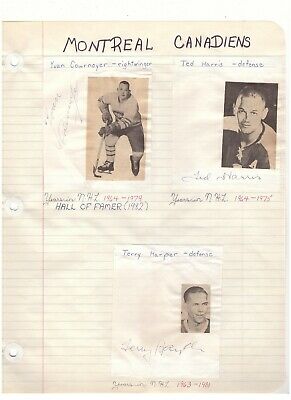 MONTREAL CANADIENS
Yvan Cournoyer - rightwinger
Ted Harris - defense
Ted Harris
Years in NHL 1964 - 1979
HALL OF FAMER (1982)
Years in NHL 1964 - 1975
Terry Harper - defense
Terry Harper
Years in NHL 1963 - 1981